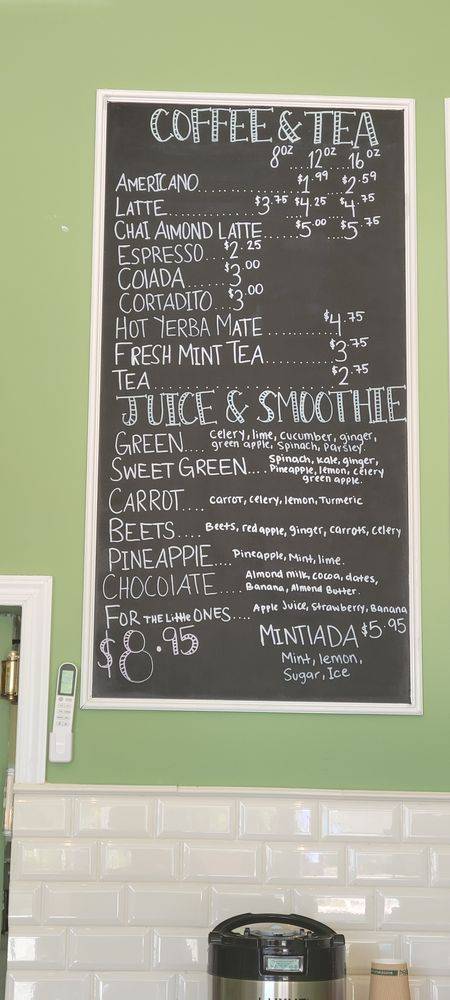 COFFEE & TEA
8OZ 12OZ 16OZ
AMERICANO.............. $1.99 ... $2.59
LATTE............. $3.75 $4.25 $4.75
CHAI AlMOND LATTE....... $5.00 ... $5.75
ESPRESSO... $2.25
COlADA..... $3.00
CORTADITO... $3.00
HOT YERBA MATE .......... $4.75
FRESH MINT TEA........... $3.75
TEA......................... $2.75
JUICE & SMOOTHIE
GREEN.... Celery, lime, cucumber, ginger,
green apple, Spinach, Parsley
SWEET GREEN.... Spinach, kale, ginger,
Pineapple, lemon, celery
green apple.
CARROT.... carrot, celery, lemon, Turmeric
BEETS.... Beets, red apple, ginger, carrots, celery
PINEAPPLE.... Pineapple, Mint, lime.
CHOCOlATE.... Almond milk, cocoa, dates,
Banana, Almond Butter.
FOR THE Little ONES.... Apple Juice, Strawberry, Banana
$8.95
MINTIADA $5.95
Mint, lemon,
Sugar, Ice